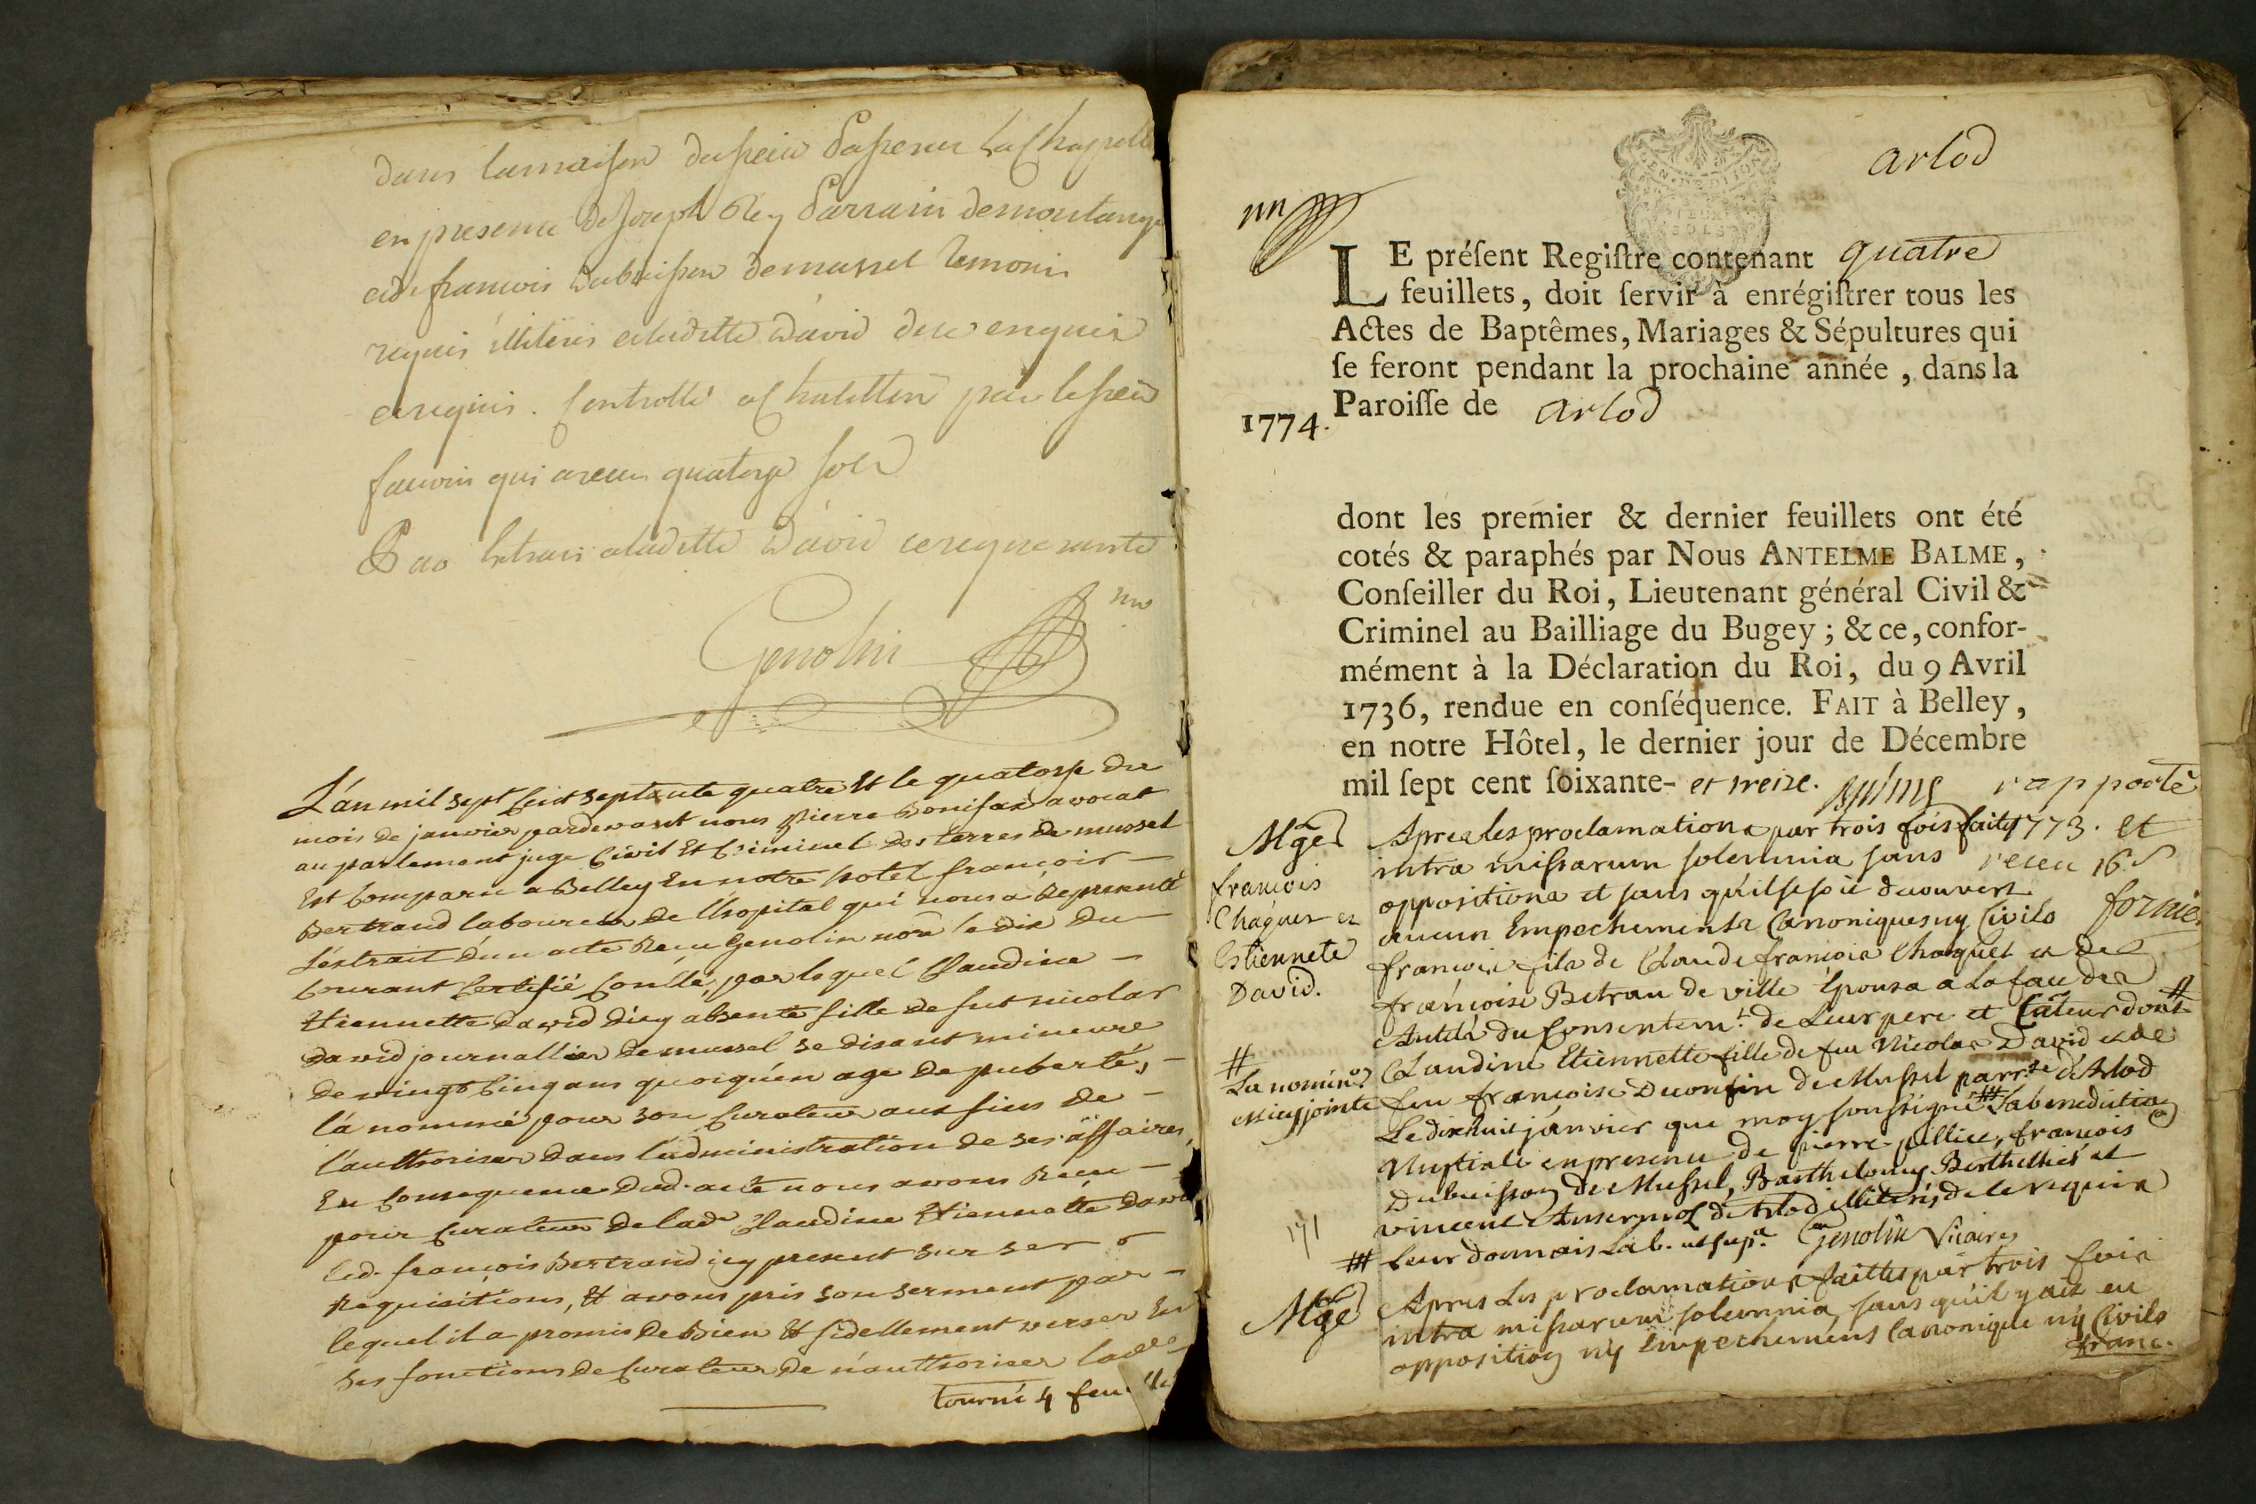 dans lamaison dusieur Passerat La Chapelle
en presence de Joseph Rey Parrain demontange
et de francois dubuisson demussel temoins
requis illiterés etladitte David de ce enquise
et requis. Controllé a Chatillon par lesieur
qui a receu quatorze sols
Par Extrait aladitte David ce requerante
Genolin nre
L'an mil sept cent septante quatre Et le quatorze du
mois de janvier pardevant nous pierre Bonifax avocat
au parlement juge Civil Et Criminel des terres de mussel
Est Comparu a Belley En notre hotel françois
Bertrand laboureur de l'hopital qui nous a Représenté
L'extrait d'un acte Reçu Genolin nore le dix du
Courant Certifié Conllé, par lequel Claudine
Etiennette David d'icy absente fille de fut nicolas
David journallier de mussel se disant mineure
de vingt Cinq ans quoiqu'en age de puberté,
l'a nommé pour son Curateur aux fins de
l'authoriser dans l'administration de ses affaires,
En Consequence dud. acte nous avons Reçu
pour Curateur de lade Claudine Etiennette David
led. françois Bertrand icy present sur ses
Requisitions, Et avons pris son serment par
lequel il a promis de Bien Et fidellement verser En
ses fonctions de Curateur de n'authoriser lade
tourné 4 feuillets
arlod
LE présent Registre contenant quatre
feuillets, doit servir à enrégistrer tous les
Actes de Baptêmes, Mariages & Sépultures qui
se feront pendant la prochaine année, dans la
Paroisse de arlod
1774.
dont les premier & dernier feuillets ont été
cotés & paraphés par Nous ANTELME BALME,
Conseiller du Roi, Lieutenant général Civil &
Criminel au Bailliage du Bugey; & ce, confor-
mément à la Déclaration du Roi, du 9 Avril
1736, rendue en conséquence. FAIT à Belley,
en notre Hôtel, le dernier jour de Décembre
mil sept cent soixante- et treize. Balme rapporté
1773. et
receu 16 s
fornier
Mge
francois
Chaquet et
Estiennete
David.
#
La nominon
est icy jointe
Apres les proclamations par trois fois faites
intra missarum solemnia sans
oppositions et sans qu'il se soit decouvert
aucun Empechements Canoniques ny Civils
francois fils de Claude francois Chaquet et de
françoise Betran de ville Epousa a La face des
Autels du Consentemt. de Leur pere et Cûrateur dont #
Claudine Etiennette fille de feu Nicolas David et de
feu françoise Ducrosin de Mussel parrsse d'Arlod
Le dixhuit janvier que moy soussigné ### La benediction
Nuptiale en presence de pierre pellice, francois
Dubuisson de Mussel, Barthelemy Berthellier et
vincent Ansermoz de Arlod illiterés de le requis
### leur donnais La b. ut supa. Genolin Vicaires
171
Mge
Apres Les proclamations faittes par trois fois
intra missarum solemnia, sans qu'il y ait eu
opposition ny Empechemens Canonique ny Civils
franc.